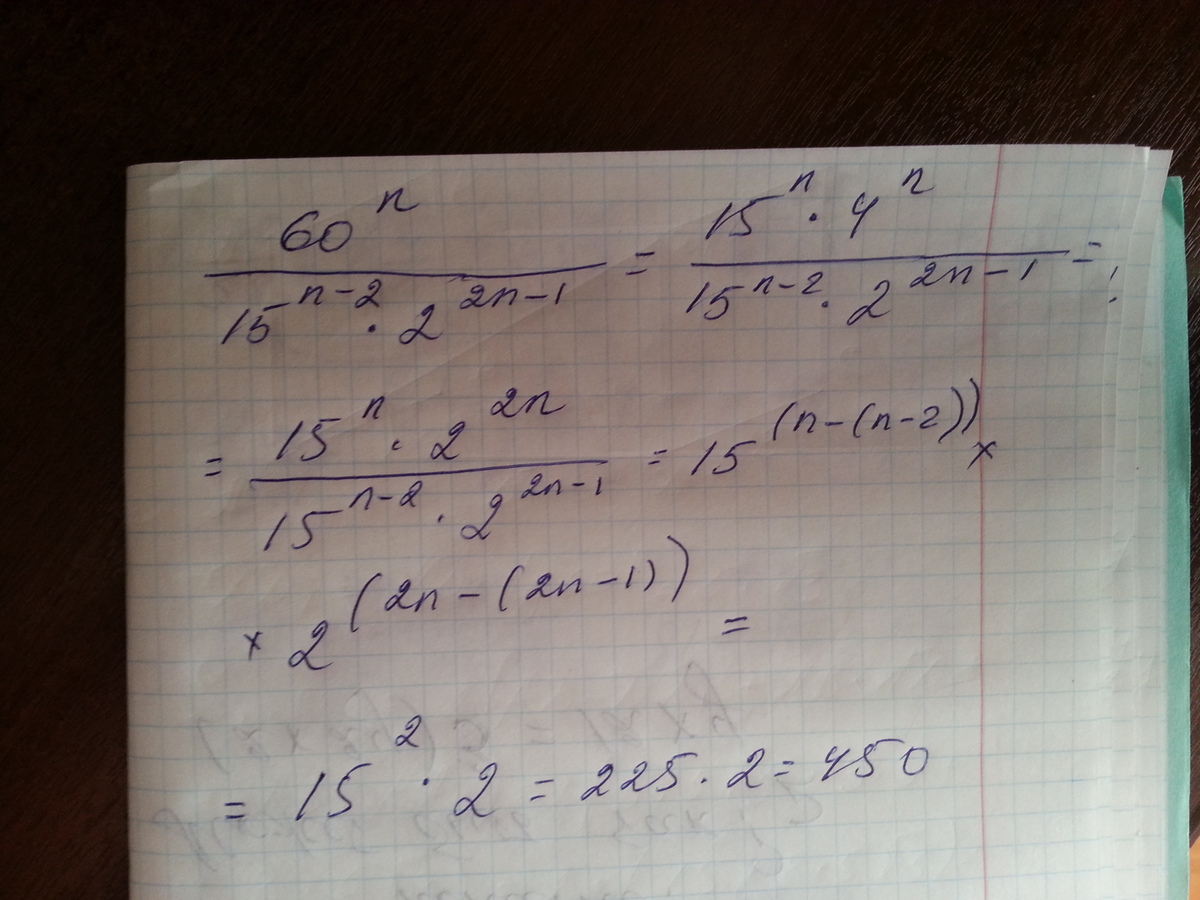 60^n / (15^(n-2) · 2^(2n-1)) = (15^n · 4^n) / (15^(n-2) · 2^(2n-1)) =
= (15^n · 2^(2n)) / (15^(n-2) · 2^(2n-1)) = 15^(n-(n-2)) ×
× 2^(2n-(2n-1)) =
= 15^2 · 2 = 225 · 2 = 450